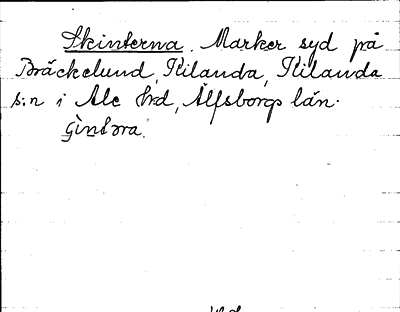 Skinterna. Marker syd på
Bräckelund, Kilanda, Kilanda
s:n i Ale hd, Älfsborgs län.